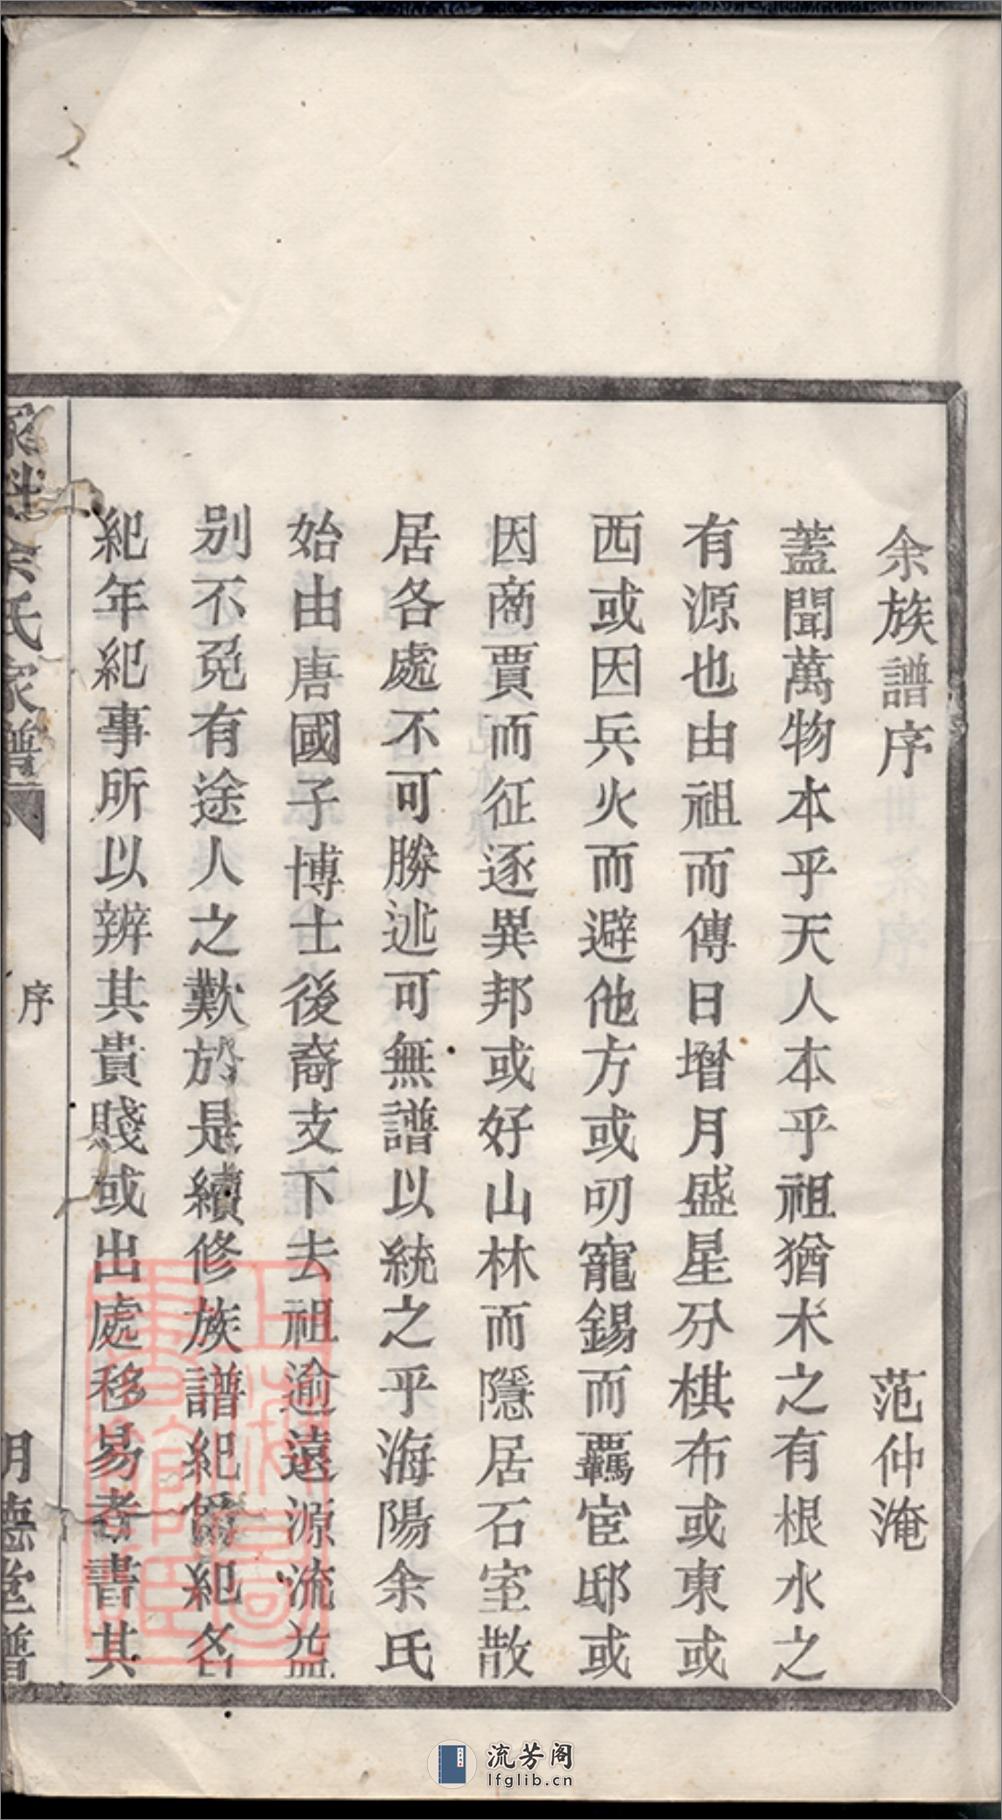 余族譜序 范仲淹
蓋聞萬物本乎天人本乎祖猶木之有根水之
有源也由祖而傳日增月盛星分棋布或東或
西或因兵火而避他方或叨寵錫而羈宦邸或
因商賈而征逐異邦或好山林而隱居石室散
居各處不可勝述可無譜以統之乎海陽余氏
始由唐國子博士後裔支下去祖逾遠源流益
別不免有途人之歎於是續修族譜紀爵紀名
紀年紀事所以辨其貴賤或出處移易者書其
余氏家譜 序 明德堂譜
上海圖書館藏
流芳阁
lfglib.cn